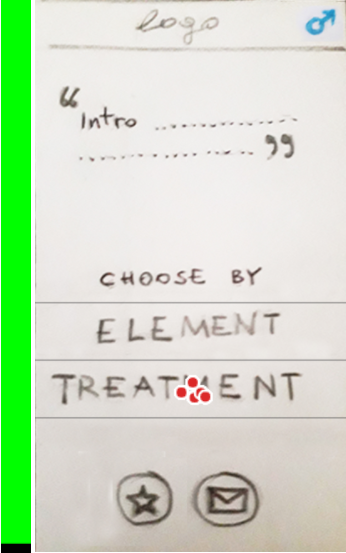 logo
“ Intro ..................
...................... ”
CHOOSE BY
ELEMENT
TREATMENT